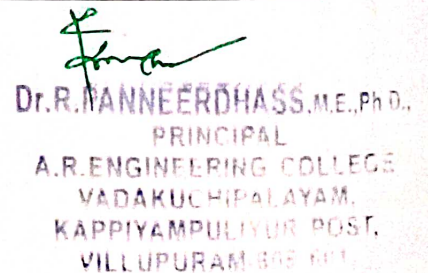 Dr.R.PANNEERDHASS.M.E.,Ph.D.,
PRINCIPAL
A.R.ENGINEERING COLLEGE
VADAKUCHIPALAYAM,
KAPPIYAMPULIYUR POST,
VILLUPURAM